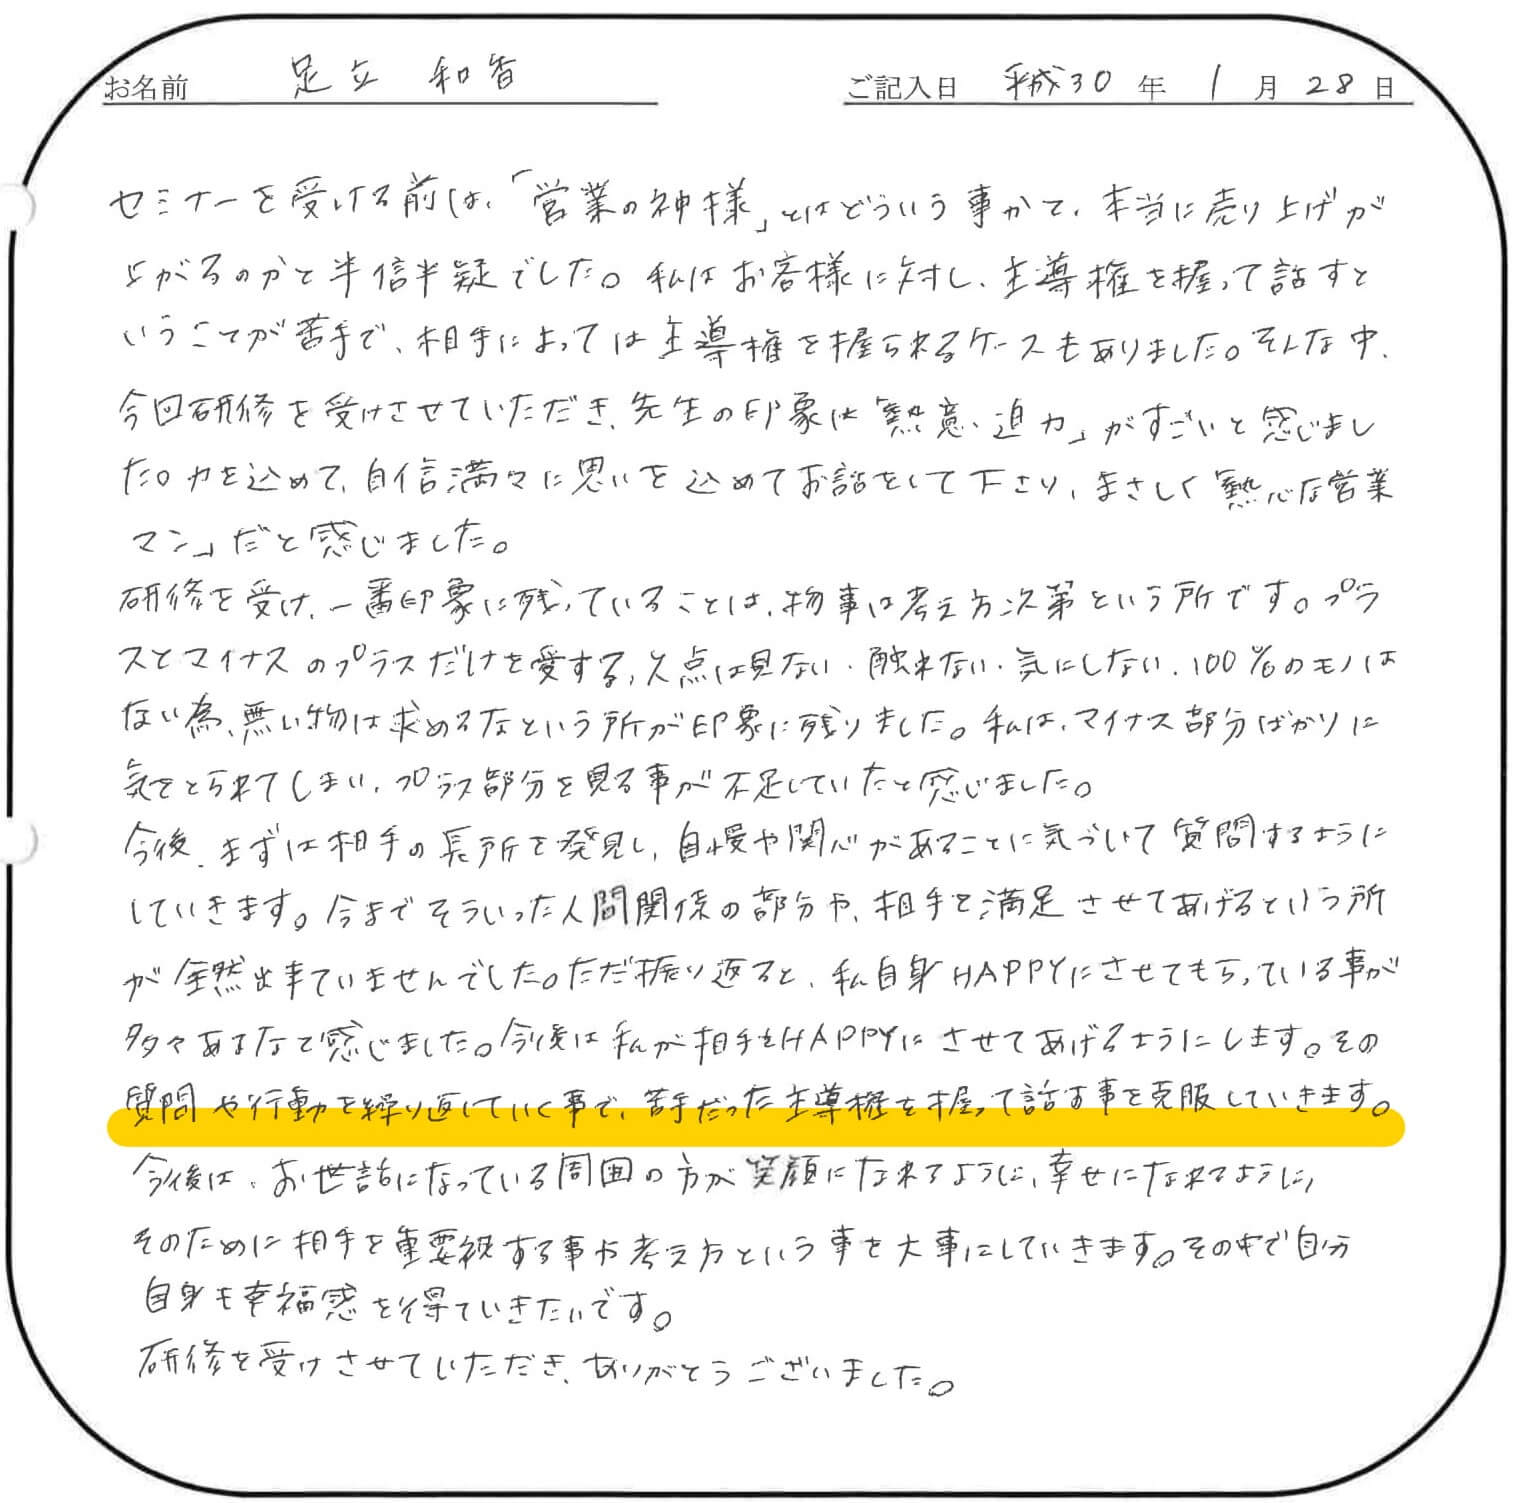 お名前 足立 和香 ご記入日 平成30年 1月28日
セミナーを受ける前は、「営業の神様」とはどういう事かで、本当に売り上げが
上がるのかと半信半疑でした。私はお客様に対し、主導権を握って話すと
いうことが苦手で、相手によっては主導権を握られるケースもありました。そんな中、
今回研修を受けさせていただき、先生の印象は「熱意・迫力」がすごいと感じまし
た。力を込めて、自信満々に思いを込めてお話をして下さり、まさしく「熱心な営業
マン」だと感じました。
研修を受け、一番印象に残っていることは、物事は考え方次第という所です。プラ
スとマイナスのプラスだけを愛する、欠点は見ない・触れない・気にしない、100%のモノは
ない為、無い物は求めるなという所が印象に残りました。私は、マイナス部分ばかりに
気をとられてしまい、プラス部分を見る事が不足していたと感じました。
今後、まずは相手の長所を発見し、自慢や関心があることに気づいて質問するように
していきます。今までそういった人間関係の部分や、相手を満足させてあげるという所
が全然出来ていませんでした。ただ振り返ると、私自身HAPPYにさせてもらっている事が
多々あるなと感じました。今後は私が相手をHAPPYにさせてあげるようにします。その
質問や行動を繰り返していく事で、苦手だった主導権を握って話す事を克服していきます。
今後は、お世話になっている周囲の方が笑顔になれるように、幸せになれるように、
そのために相手を重要視する事や考え方という事を大事にしていきます。その中で自分
自身も幸福感を得ていきたいです。
研修を受けさせていただき、ありがとうございました。